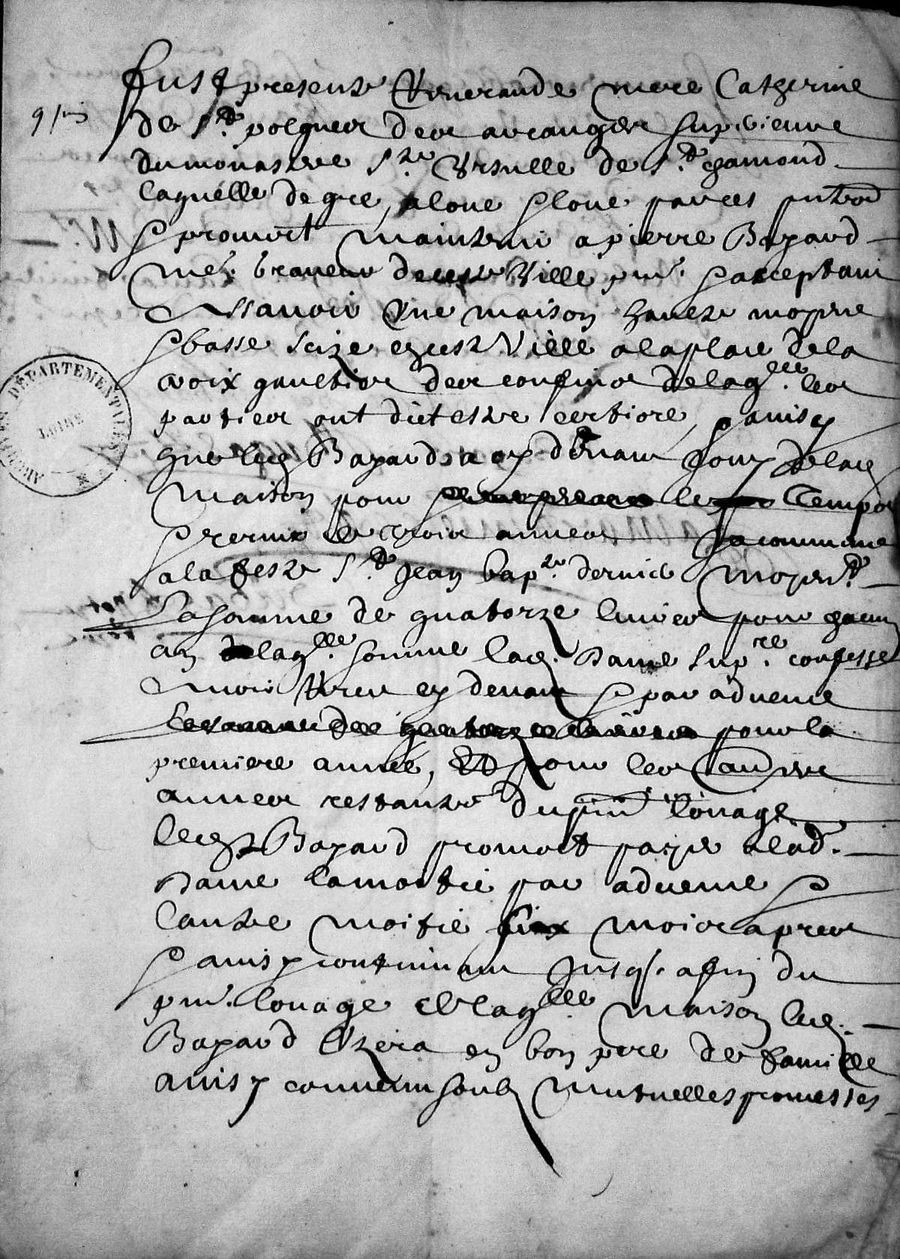 fust presente Reverande mere Catherine
de St polgue des archanges superieure
du monastere Ste Ursulle de St chamond
laquelle de gre, a loué & loue par ces pntes
& promect maintenir a pierre Bayard
Me. de ceste Ville pnt. & acceptant
Assavoir Une maison haulte moyene
& basse size en ceste Ville a la place de la
croix gaultier des confins de laqlle. les
parties ont dict estre certiore,
que led Bayard a cy devant jouy de lad
Maison pour le temps
& terme de trois annees
a la feste St Jean bapte. dernier
La somme de quatorze livres pour chacun
an laqlle. somme lad. Dame supre. confesse
avoir Receu cy devant & par advence
pour la
premiere année, Et pour les autres
annees restantes du pnt louage
led Bayard promect payer a lad.
Dame la moitié par advence &
l'autre moitie six Mois apres
& ainsy continuant jusq. a fin du
pnt. louage de laqlle Maison led.
Bayard Uzera en bon pere de famille
ainsy convenu soubz Mutuelles promesses
ARCHIVES DÉPARTEMENTALES
LOIRE